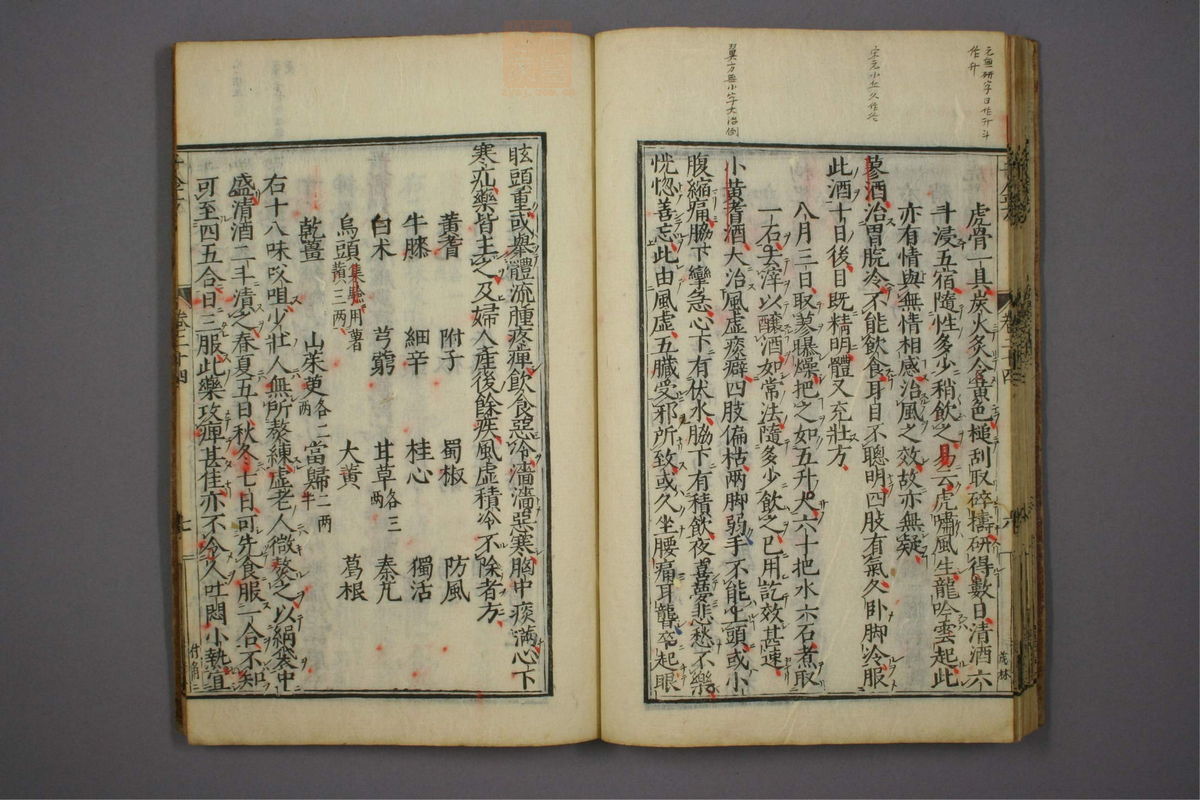 元無研字日作升斗
作升
宋元小并久作
翼方無小字大治例
虎骨一具炭火炙令黃色槌刮取碎擣研得數日清酒六
斗浸五宿隨性多少稍飲之易云虎嘯風生龍吟雲起此
亦有情與無情相感治風之效故亦無疑
蓼酒治胃脘冷不能飲食耳目不聰明四肢有氣久臥脚冷服
此酒十日後目既精明體又充壯方
八月三日取蓼曝燥把之如五升大六十把水六石煮取
一石去滓以釀酒如常法隨多少飲之已用訖效甚速
小黃耆酒大治風虛痰癖四肢偏枯兩脚弱手不能上頭或小
腹縮痛脇下攣急心下有伏水脇下有積飲夜喜夢悲愁不樂
恍惚善忘此由風虛五臟受邪所致或久坐腰痛耳聾卒起眼
茂林
眩頭重或舉體流腫疼痺飲食惡冷濇濇惡寒胸中痰滿心下
寒疝藥皆主之及婦人產後餘疾風虛積冷不除者方
黃耆 附子 蜀椒 防風
牛膝 細辛 桂心 獨活
白朮 芎藭 甘草各三兩 秦艽
烏頭集驗用薯蕷三兩 大黃 葛根
乾薑 山茱萸各二兩 當歸二兩半
右十八味㕮咀少壯人無所熬練虛老人微熬之以絹袋中
盛清酒二斗漬之春夏五日秋冬七日可先食服一合不知
可至四五合日三服此藥攻痺甚佳亦不令人吐悶小熱宜
卷三十四
七